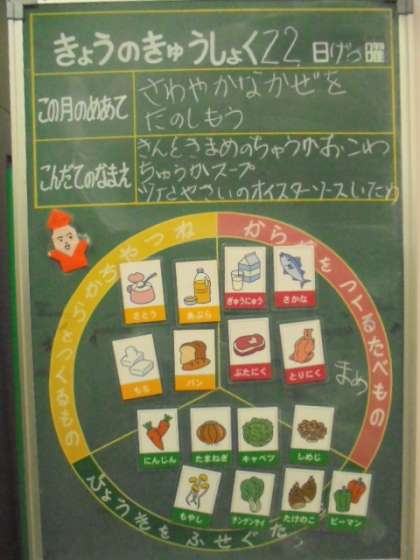 きょうのきゅうしょく22日げつ曜
この月のめあて
さわやかなかぜを
たのしもう
こんだてのなまえ
きんときまめのちゅうかおこわ
ちゅうかスープ
とやさいのオイスターソースいため
ねつやちからをつくるもの
からだをつくるたべもの
さとう
あぶら
ぎゅうにゅう
さかな
もち
パン
ぶたにく
とりにく
まめ
にんじん
たまねぎ
キャベツ
しめじ
もやし
チンゲンサイ
たけのこ
ピーマン
びょうきをふせぐた